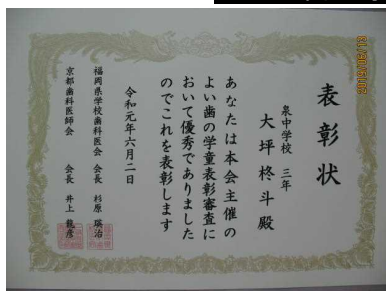 表彰状
泉中学校 三年
大坪柊斗殿
あなたは本会主催の
よい歯の学童表彰審査に
おいて優秀でありました
のでこれを表彰します
令和元年六月二日
福岡県学校歯科医会 会長 杉原瑛治
京都歯科医師会 会長 井上龍彦